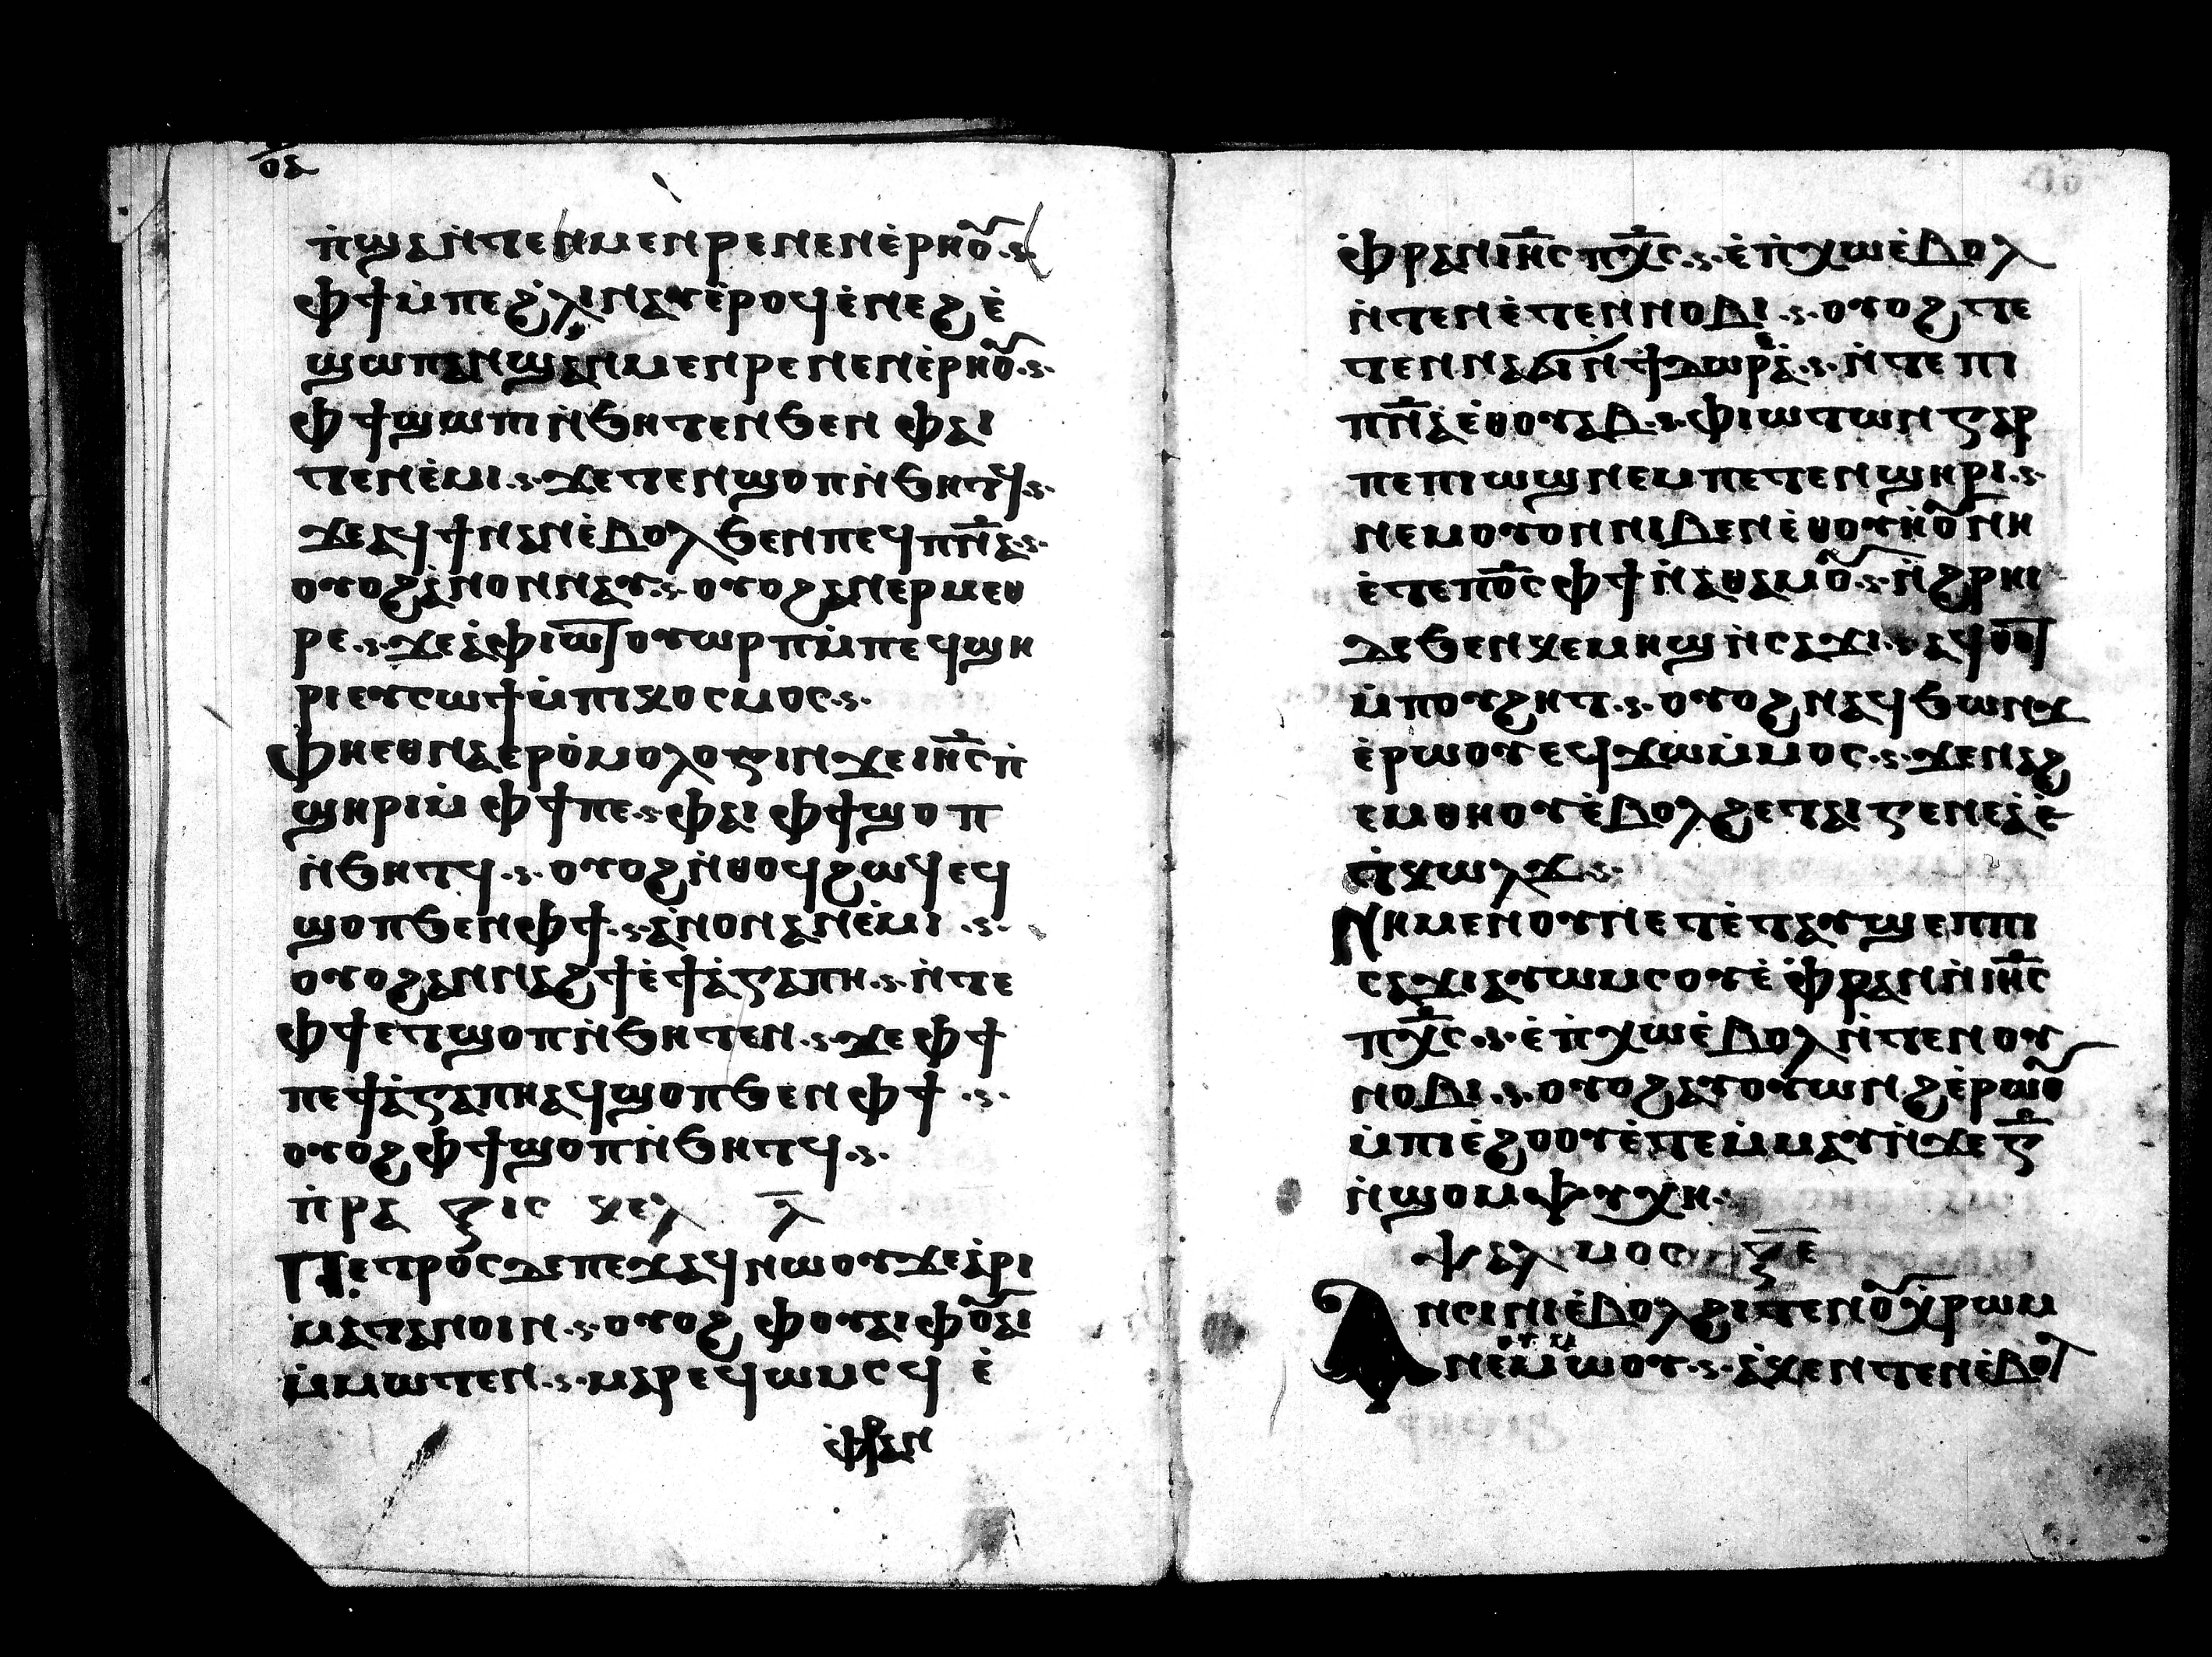 ⲟⲁ
ⲡ̀ϣⲁⲛ̀ⲧⲉⲛⲙⲉⲛⲣⲉⲛⲉⲛⲉ̀ⲣⲏⲟⲩ
ⲫϯⲙ̀ⲡⲉϩ̀ⲗⲓⲛⲁⲩⲉ̀ⲣⲟϥⲉ̀ⲛⲉϩⲉ̀
ϣⲱⲡⲁⲛϣⲁⲛⲙⲉⲛⲣⲉⲛⲉⲛⲉ̀ⲣⲏⲟⲩ
ⲫϯϣⲱⲡⲓⲛ̀ϧⲏⲧⲉⲛϧⲉⲛ ⲫⲁⲓ
ⲧⲉⲛⲉ̀ⲙⲓ ϫⲉⲧⲉⲛϣⲟⲡⲛ̀ϧⲏⲧϥ
ϫⲉⲁϥϯⲛⲁⲛⲉ̀ⲃⲟⲗϧⲉⲛⲡⲉϥⲡⲛ̅ⲁ
ⲟⲩⲟϩⲁ̀ⲛⲟⲛⲛⲁⲩ ⲟⲩⲟϩⲁⲛⲉⲣⲙⲉⲑ
ⲣⲉ ϫⲉⲁ̀ⲫⲓⲱⲧⲟⲩⲱⲣⲡⲙ̀ⲡⲉϥϣⲏ
ⲣⲓⲉⲩⲥⲱϯⲙ̀ⲡⲓⲕⲟⲥⲙⲟⲥ
ⲫⲏⲉⲑⲛⲁⲉⲣⲟ̀ⲙⲟⲗⲟⲅⲓⲛϫⲉⲓⲏ̅ⲥⲡ̀
ϣⲏⲣⲓⲙ̀ ⲫϯⲡⲉ ⲫⲁⲓ ⲫϯϣⲟⲡ
ⲛ̀ϧⲏⲧϥ ⲟⲩⲟϩⲛ̀ⲑⲟϥϩⲱϥⲉϥ
ϣⲟⲡϧⲉⲛⲫϯ ⲁ̀ⲛⲟⲛⲁⲛⲉ̀ⲙⲓ
ⲟⲩⲟϩⲁⲛⲛⲁϩϯⲉ̀ϯⲁ̀ⲅⲁⲡⲏ ⲛ̀ⲧⲉ
ⲫϯⲉⲧϣⲟⲡⲛ̀ϧⲏⲧⲉⲛ ϫⲉⲫϯ
ⲡⲉϯⲁ̀ⲅⲁⲡⲏⲁϥϣⲟⲡϧⲉⲛ ⲫϯ
ⲟⲩⲟϩⲫϯϣⲟⲡⲛ̀ϧⲏⲧϥ
ⲡ̀ⲣⲁ ⲝⲓⲥ ⲕⲉⲗ ⲗ̅
Ⲡⲉⲧⲣⲟⲥⲇⲉⲡⲉϫⲁϥⲛⲱⲟⲩϫⲉⲁ̀ⲣⲓ
ⲙⲁⲧⲁⲛⲟⲓⲛ ⲟⲩⲟϩ ⲫⲟⲩⲁⲓⲫⲟⲩⲁⲓ
ⲙ̀ⲙⲱⲧⲉⲛ ⲙⲁⲣⲉϥⲱⲙⲥϥ ⲉ̀
ⲫ̀ⲣⲁⲛ
ⲫ̀ⲣⲁⲛⲓⲏ̅ⲥⲡⲭ̅ⲥ ⲉ̀ⲡ̀ⲭⲱⲉ̀ⲃⲟⲗ
ⲛ̀ⲧⲉⲛⲉ̀ⲧⲉⲛⲛⲟⲃⲓ ⲟⲩⲟϩⲧⲉ
ⲧⲉⲛⲛⲁϭⲓⲛ̀ϯⲇⲱⲣⲉⲁ̀ ⲛ̀ⲧⲉⲡⲓ
ⲡⲛ̅ⲁⲉ̀ⲑⲟⲩⲁⲃ ⲫⲓⲱⲧⲱⲛⲅⲁⲣ
ⲡⲉⲡⲓⲱϣⲛⲉⲙⲡⲉⲧⲉⲛϣⲏⲣⲓ
ⲛⲉⲙⲟⲩⲟⲛⲛⲓⲃⲉⲛⲉ̀ⲑⲟⲩⲏⲟⲩⲛⲏ
ⲉ̀ⲧⲉⲡⲟ̅ⲥⲫϯⲛ̀ⲁⲑⲁⲙⲟⲩ ⲛ̀ϩⲣⲏⲓ
ⲇⲉϧⲉⲛⲕⲉⲙⲏϣⲛ̀ⲥⲁϫⲓ ⲁϥⲑⲟⲧ
ⲙ̀ⲡⲟⲩϩⲏⲧ ⲟⲩⲟϩⲛⲁϥϧⲱⲛϫ
ⲉ̀ⲣⲱⲟⲩⲉϥϫⲱⲙ̀ⲙⲟⲥ ϫⲉⲛⲁϩ
ⲉⲙⲑⲏⲟⲩⲉ̀ⲃⲟⲗϩⲉⲧⲁⲓⲅⲉⲛⲉⲁ̀ⲉ̀
ⲧ̀ⲕⲱⲗϫ
Ⲛⲏⲙⲉⲛⲟⲩⲛⲉⲧⲉ̀ⲧⲁⲩϣⲉⲡⲡⲓ
ⲥⲁϫⲓⲁⲩⲱⲙⲥⲟⲩⲉ̀ ⲫ̀ⲣⲁⲛⲛ̀ⲓⲏ̅ⲥ
ⲡⲭ̅ⲥ ⲉ̀ⲡ̀ⲭⲱⲉ̀ⲃⲟⲗⲛ̀ⲧⲉⲛⲟⲩ
ⲛⲟⲃⲓ ⲟⲩⲟϩⲁⲩⲟⲩⲱⲛϩⲉ̀ⲣⲱⲟⲩ
ⲙ̀ⲡⲓⲉ̀ϩⲟⲟⲩⲉ̀ⲧⲉⲙ̀ⲙⲁⲩⲛ̀ϫⲉⲅ̅
ⲛ̀ϣⲟⲙⲯⲩⲭⲏ
ⲯⲁⲗ ⲙⲟⲥ ⲝ̅ⲉ
Ⲁⲛⲥⲓⲛⲓⲉ̀ⲃⲟⲗϩⲓⲧⲉⲛⲟⲩⲭ̀ⲣⲱⲙ
ⲛⲉⲙⲟⲩⲙⲱⲟⲩ ⲁ̀ⲕⲉⲛⲧⲉⲛⲉ̀ⲃⲟⲗ